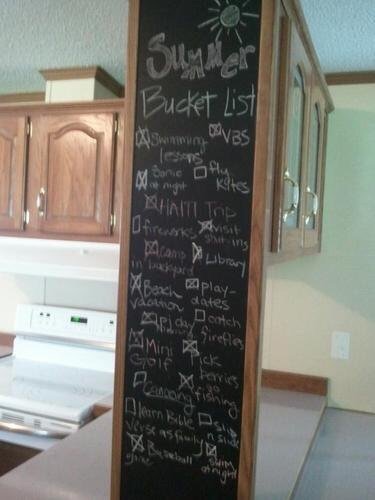 Summer
Bucket List
Swimming lessons
VBS
at night
fly kytes
HAITI Trip
fireworks
visit shut-ins
Camp in backyard
Library
Beach vacation
play-dates
pj day
catch fireflies
Mini Golf
pick berries
Canoeing
go fishing
learn Bible verse as family
slip n slide
Baseball game
swim at night